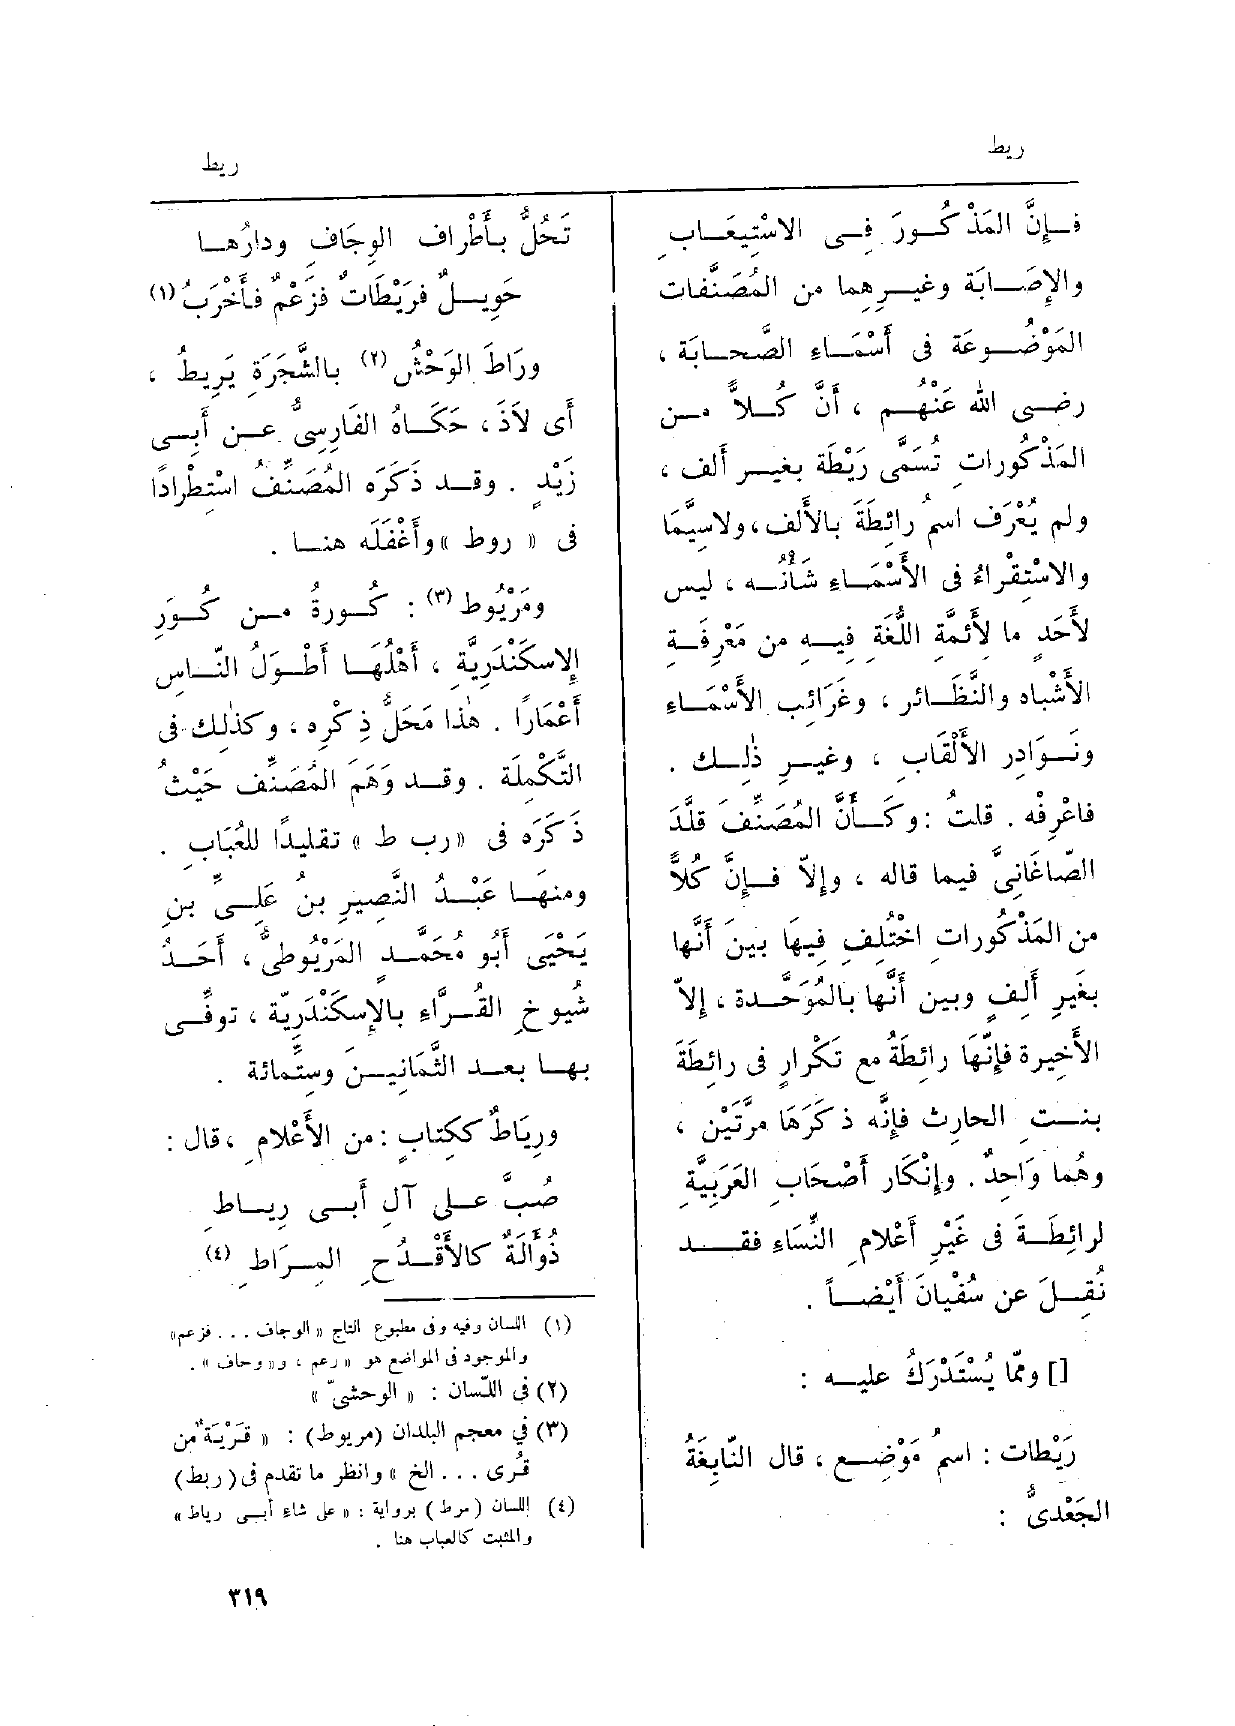 ريط
ريط
فـإنَّ المَذْكُـورَ فِـى الاسْتِيعَـابِ
والإِصَـابَة وغيـرِهِما من المُصَنَّفات
المَوْضُـوعَة فى أَسْمَـاءِ الصَّحـابَة ،
رضـى الله عَنْهُـم ، أَنَّ كُـلاًّ مـن
المَذْكُورات تُسَمَّى رَيْطَة بغيـر ألف ،
ولم يُعْرَف اسمُ رائطَةَ بالأَلف ، ولاسِيَّمَا
والاسْتِقْراءُ فى الأَسْمَـاءِ شَأْنُـه ، ليس
لأَحَدٍ ما لأَئمَّةِ اللُّغَةِ فيـه من مَعْرِفَـةِ
الأَشْباه والنَّظَـائرِ ، وغَرَائبِ الأَسْمَـاءِ
ونَـوَادرِ الأَلْقَابِ ، وغيـرِ ذٰلِـك .
فاعْرِفْه . قلتُ : وكَـأَنَّ المُصَنِّفَ قلَّدَ
الصّاغَانِىَّ فيما قاله ، وإلاّ فـإنَّ كُلاًّ
من المَذْكُورات اخْتلِف فِيهَا بينَ أَنَّها
بغَيرِ أَلِفٍ وبين أَنَّها بالمُوَحَّـدة ، إلاّ
الأَخِيرة فإنَّهَا رائطَةُ مع تَكْرارٍ فى رائطَةَ
بنـتِ الحارِث فإنَّه ذَكَرَهَا مرَّتَيْن ،
وهُما وَاحِدٌ . وإنْكَار أَصْحَابِ العَرَبيَّةِ
لرائِطَـةَ فى غَيْرِ أَعْلامِ النِّسَاءِ فقــد
نُقِـلَ عن سُفْيَانَ أَيْضـاً .
[] وممّا يُسْتَدْرَكُ عليـه :
رَيْطات : اسمُ مَوْضِـع ، قال النّابِغَةُ
الجَعْدىُّ :
تَحُلُّ بـأَطْراف الوِجَافِ ودارُهـا
حَوِيـلٌ فرَيْطَاتٌ فزَعْمٌ فأَخْرَبُ (١)
ورَاطَ الوَحْشُ (٢) بالشَّجَرَةِ يَرِيطُ ،
أى لاَذَ ، حَكَـاهُ الفَارِسِىُّ عـن أَبِـى
زَيْدٍ . وقـد ذَكَرَه المُصَنِّفُ اسْتِطْرادًا
فى « روط » وأَغْفَلَه هنـا .
ومَرْيُوط (٣) : كُـورةٌ مـن كُـوَرِ
الإسكَنْدَرِيَّةِ ، أَهْلُهَـا أَطْـوَلُ النّـاس
أَعْمَارًا . هٰذا مَحَلُّ ذِكْرِه ، وكذٰلك فى
التَّكْمِلَة . وقـد وَهَم المُصَنِّف حَيْثُ
ذَكَرَه فى « رب ط » تقليدًا للعُبَابِ .
ومنهـا عَبْـدُ النَّصِيرِ بنُ عَلِـىِّ بنِ
يَحْيَى أَبُو مُحَمَّـدٍ المَرْيُوطىُّ ، أَحَـدُ
شُيوخِ القُـرَّاءِ بالإسكَنْدَرِيّة ، توفِّـى
بهـا بعـد الثَّمَانِيـنَ وستِّمائة .
ورِيَاطٌ ككِتابٍ : من الأَعْلامِ ، قال :
صُبَّ عـلى آلِ أَبِـى رِيـاطِ
ذُوَالَةٌ كالأَقْـدُحِ المِـرَاطِ (٤)
(١) اللسان وفيه وفى مطبوع التاج « الوجاف . . . فزعم»
والموجود فى المواضع هو « رعم ، و« وحاف » .
(٢) فى اللّسان : « الوحشىّ »
(٣) في معجم البلدان (مريوط) : « قَرْيَة من
قُرى . . . الخ » وانظر ما تقدم فى (ربط)
(٤) اللسان (مرط) برواية : « على شاء أبـى رياط »
والمثبت كالعباب هنا .
٣١٩